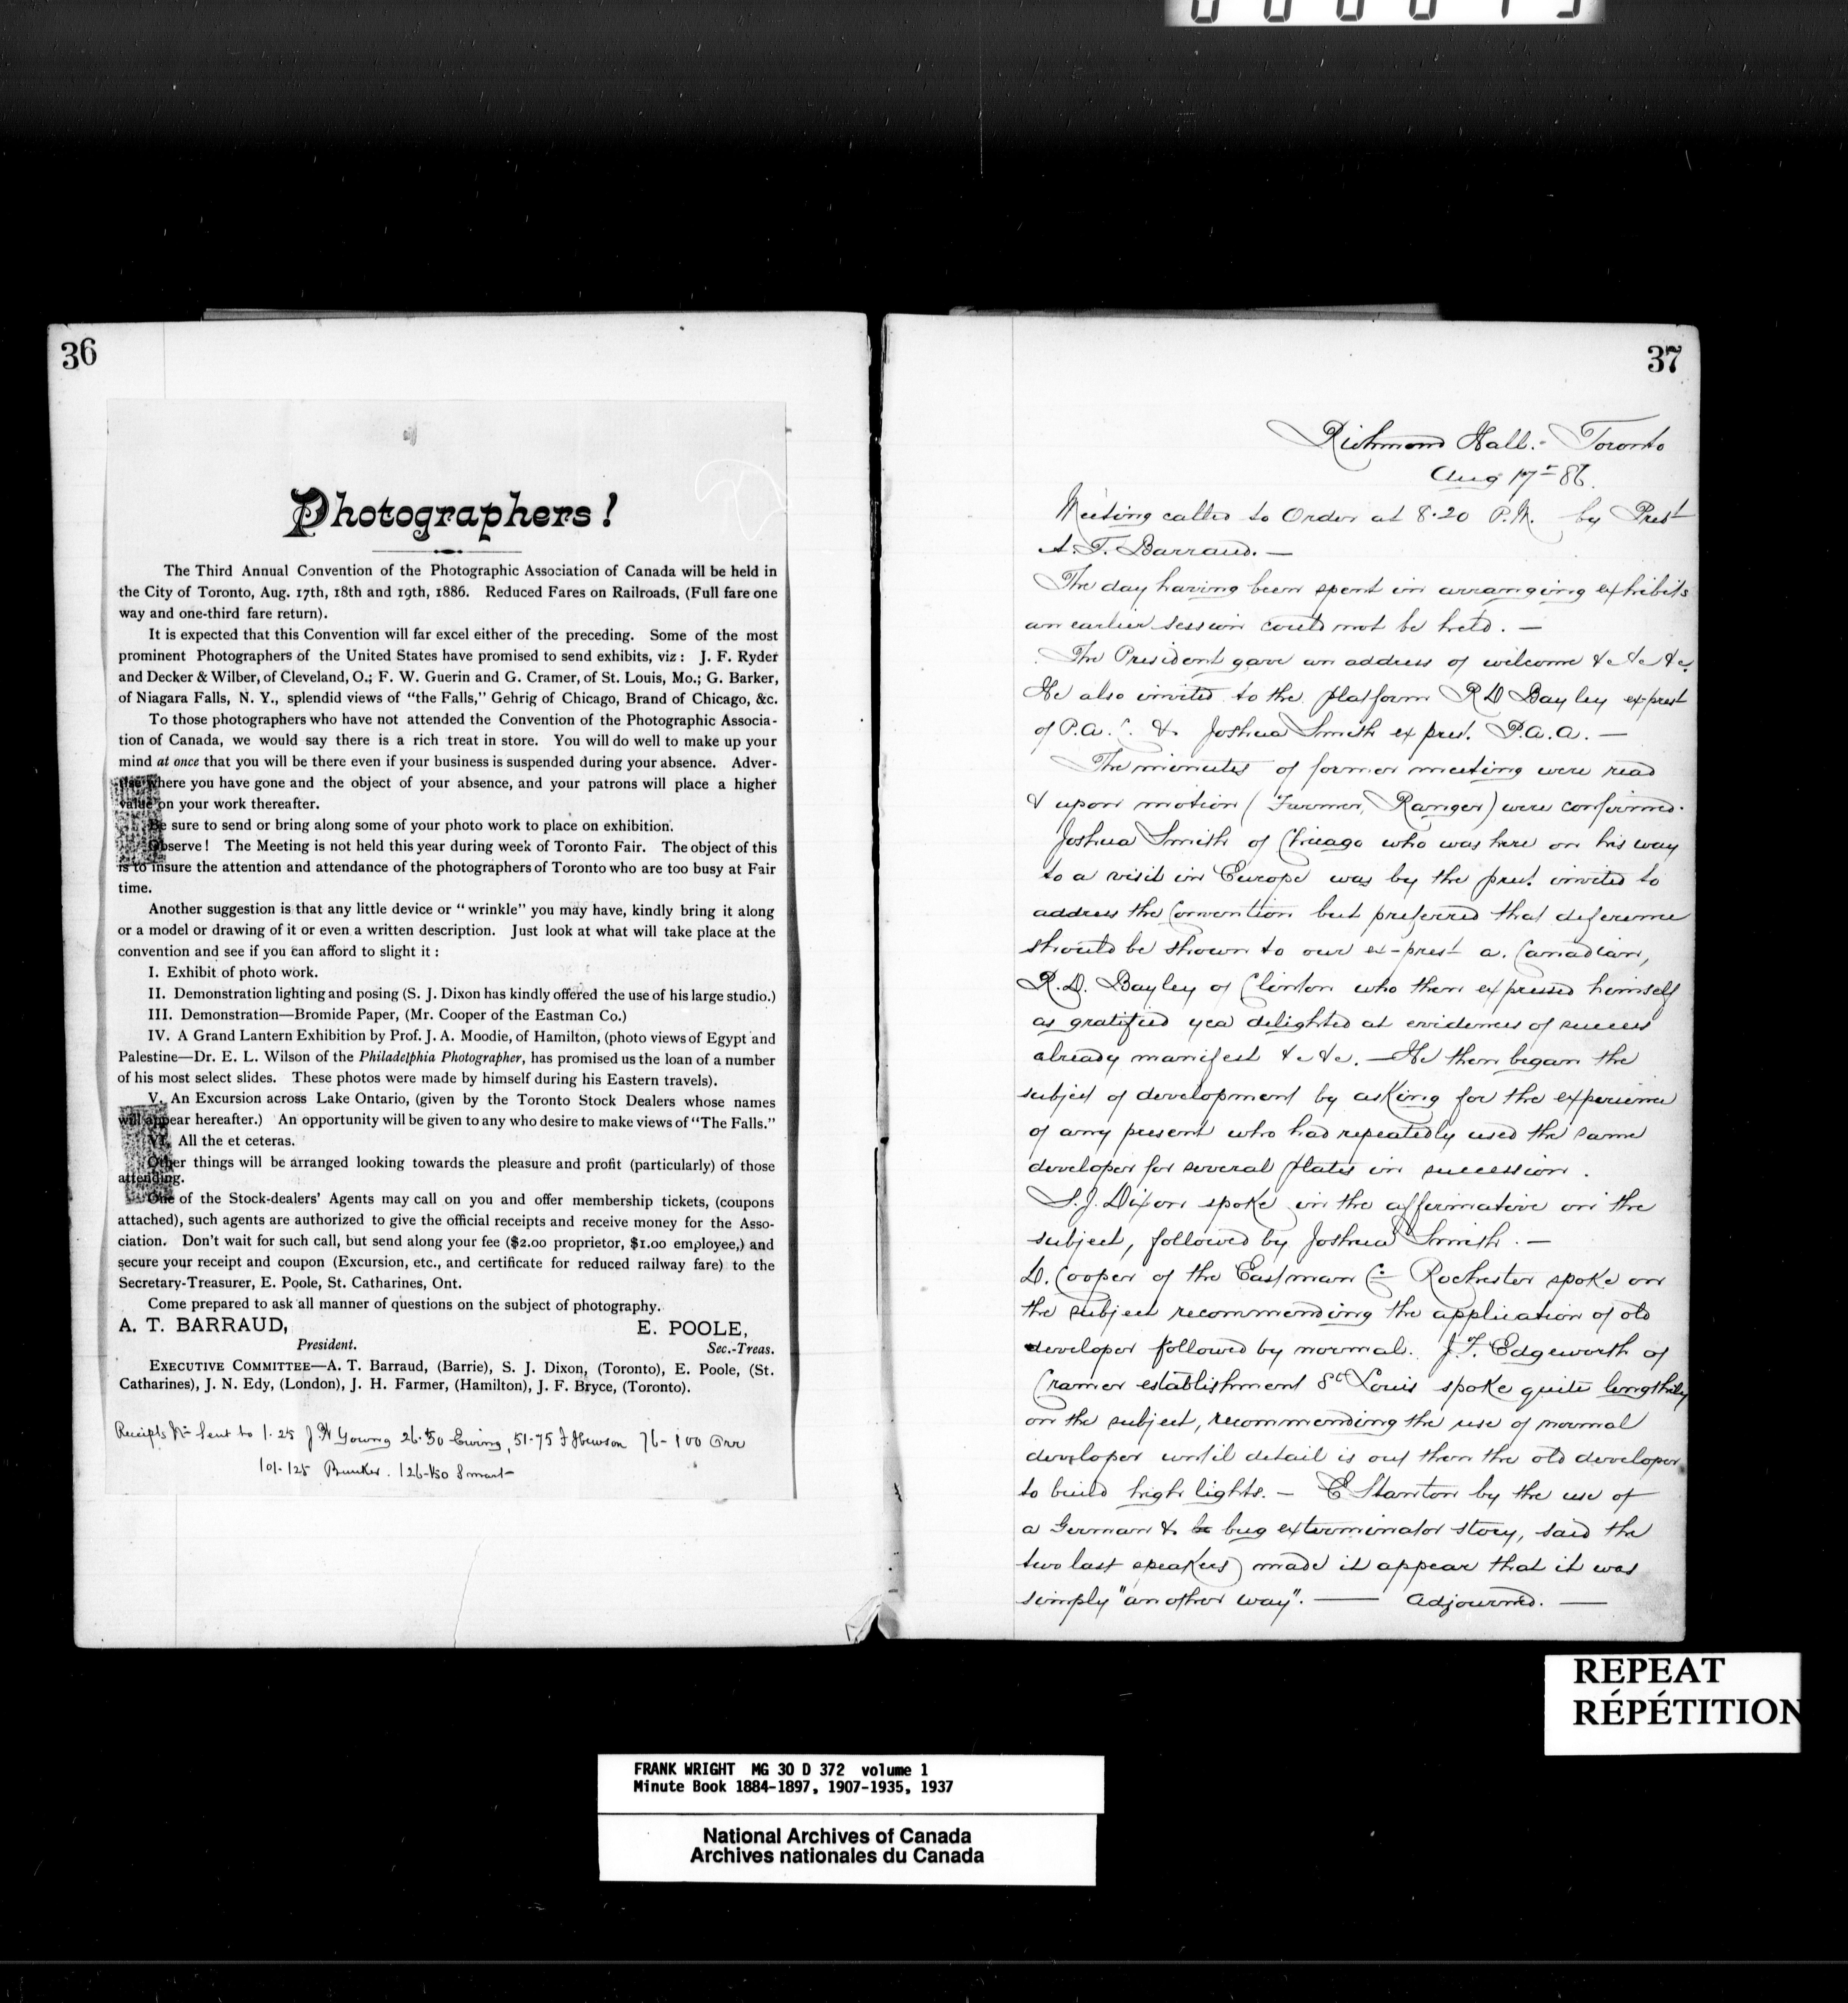 36
Photographers!
The Third Annual Convention of the Photographic Association of Canada will be held in
the City of Toronto, Aug. 17th, 18th and 19th, 1886. Reduced Fares on Railroads, (Full fare one
way and one-third fare return).
It is expected that this Convention will far excel either of the preceding. Some of the most
prominent Photographers of the United States have promised to send exhibits, viz: J. F. Ryder
and Decker & Wilber, of Cleveland, O.; F. W. Guerin and G. Cramer, of St. Louis, Mo.; G. Barker,
of Niagara Falls, N. Y., splendid views of "the Falls," Gehrig of Chicago, Brand of Chicago, &c.
To those photographers who have not attended the Convention of the Photographic Associa-
tion of Canada, we would say there is a rich treat in store. You will do well to make up your
mind at once that you will be there even if your business is suspended during your absence. Adver-
tise where you have gone and the object of your absence, and your patrons will place a higher
value on your work thereafter.
Be sure to send or bring along some of your photo work to place on exhibition.
Observe! The Meeting is not held this year during week of Toronto Fair. The object of this
is to insure the attention and attendance of the photographers of Toronto who are too busy at Fair
time.
Another suggestion is that any little device or "wrinkle" you may have, kindly bring it along
or a model or drawing of it or even a written description. Just look at what will take place at the
convention and see if you can afford to slight it:
I. Exhibit of photo work.
II. Demonstration lighting and posing (S. J. Dixon has kindly offered the use of his large studio.)
III. Demonstration—Bromide Paper, (Mr. Cooper of the Eastman Co.)
IV. A Grand Lantern Exhibition by Prof. J. A. Moodie, of Hamilton, (photo views of Egypt and
Palestine—Dr. E. L. Wilson of the Philadelphia Photographer, has promised us the loan of a number
of his most select slides. These photos were made by himself during his Eastern travels).
V. An Excursion across Lake Ontario, (given by the Toronto Stock Dealers whose names
will appear hereafter.) An opportunity will be given to any who desire to make views of "The Falls."
VI. All the et ceteras.
Other things will be arranged looking towards the pleasure and profit (particularly) of those
attending.
One of the Stock-dealers' Agents may call on you and offer membership tickets, (coupons
attached), such agents are authorized to give the official receipts and receive money for the Asso-
ciation. Don't wait for such call, but send along your fee ($2.00 proprietor, $1.00 employee,) and
secure your receipt and coupon (Excursion, etc., and certificate for reduced railway fare) to the
Secretary-Treasurer, E. Poole, St. Catharines, Ont.
Come prepared to ask all manner of questions on the subject of photography.
A. T. BARRAUD, E. POOLE,
President. Sec.-Treas.
EXECUTIVE COMMITTEE—A. T. Barraud, (Barrie), S. J. Dixon, (Toronto), E. Poole, (St.
Catharines), J. N. Edy, (London), J. H. Farmer, (Hamilton), J. F. Bryce, (Toronto).
Receipts No Sent to 1-25 J H Young 26-50 Ewing, 51-75 76-100 Orr
101-125 Bunker. 126-150 Smart
37
Richmond Hall. - Toronto
Aug 17th 86.
Meeting called to Order at 8.20 P.M. by Prest
A. T. Barraud. —
The day having been spent in arranging exhibits
an earlier session could not be held. —
The President gave an address of welcome &c &c &c.
He also invited to the platform R D Bayley ex-prest
of P.A.C. & Joshua Smith ex pres. P.A.A. —
The minutes of former meeting were read
& upon motion (Farmer, Ranger) were confirmed.
Joshua Smith of Chicago who was here on his way
to a visit in Europe was by the prest. invited to
address the Convention but preferred that deference
should be shown to our ex-prest a Canadian,
R. D. Bayley of Clinton who then expressed himself
as gratified yea delighted at evidences of success
already manifest &c &c. — He then began the
subject of development by asking for the experience
of any present who had repeatedly used the same
developer for several plates in succession.
S. J. Dixon spoke in the affirmative on the
subject, followed by Joshua Smith. —
D. Cooper of the Eastman Co Rochester spoke on
the subject recommending the application of old
developer followed by normal. J. F. Edgeworth of
Cramer establishment St Louis spoke quite lengthily
on the subject, recommending the use of normal
developer until detail is out then the old developer
to build high lights. — E Stanton by the use of
a German & bug exterminator story, said the
two last speakers made it appear that it was
simply "another way". — Adjourned. —
REPEAT
RÉPÉTITION
FRANK WRIGHT MG 30 D 372 volume 1
Minute Book 1884-1897, 1907-1935, 1937
National Archives of Canada
Archives nationales du Canada